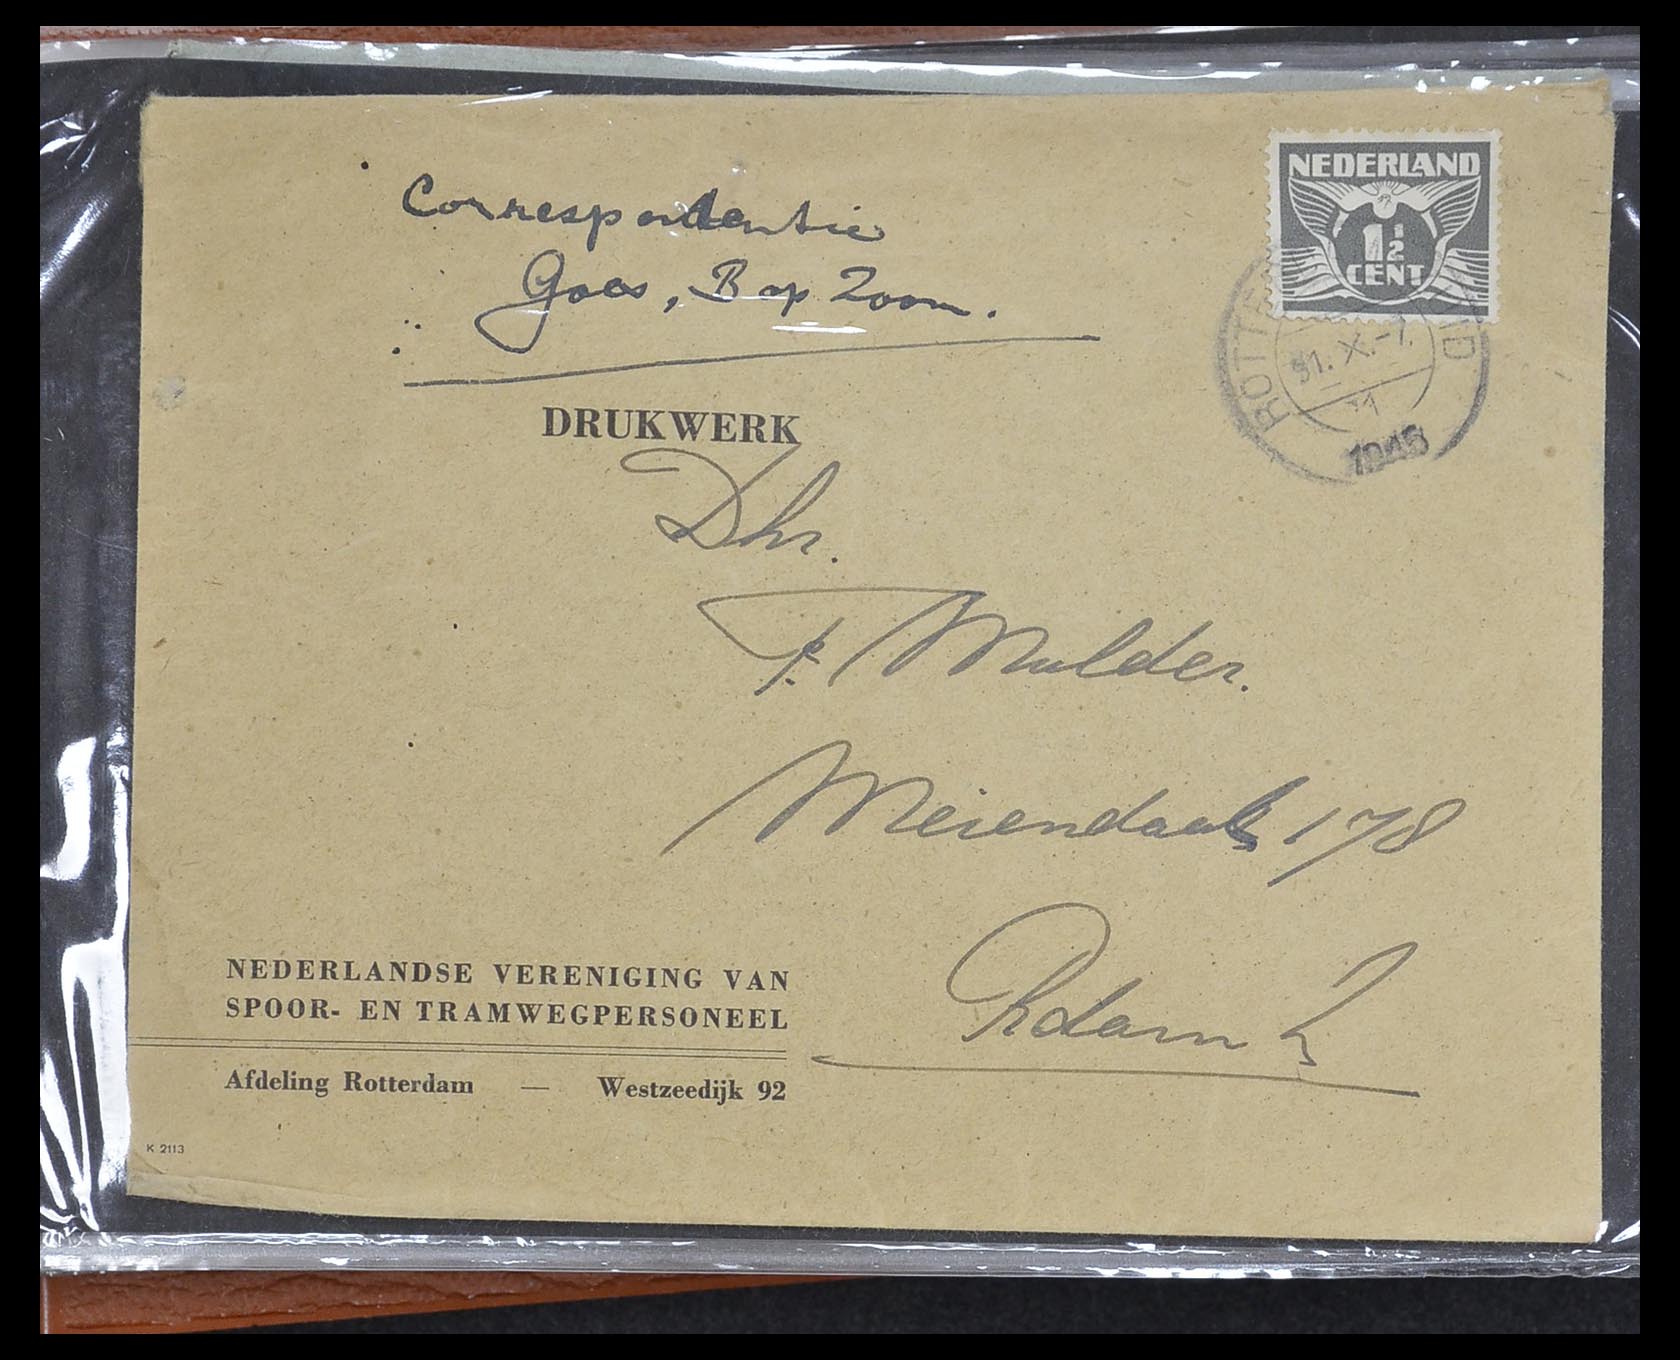 Correspondentie
Goes, B op Zoom.
NEDERLAND
1½
CENT
ROTTE
31. X.-7.
1946
DRUKWERK
Dhr.
P. Mulder.
Meiendaal 178
Rdam Z
NEDERLANDSE VERENIGING VAN
SPOOR- EN TRAMWEGPERSONEEL
Afdeling Rotterdam — Westzeedijk 92
K 2113